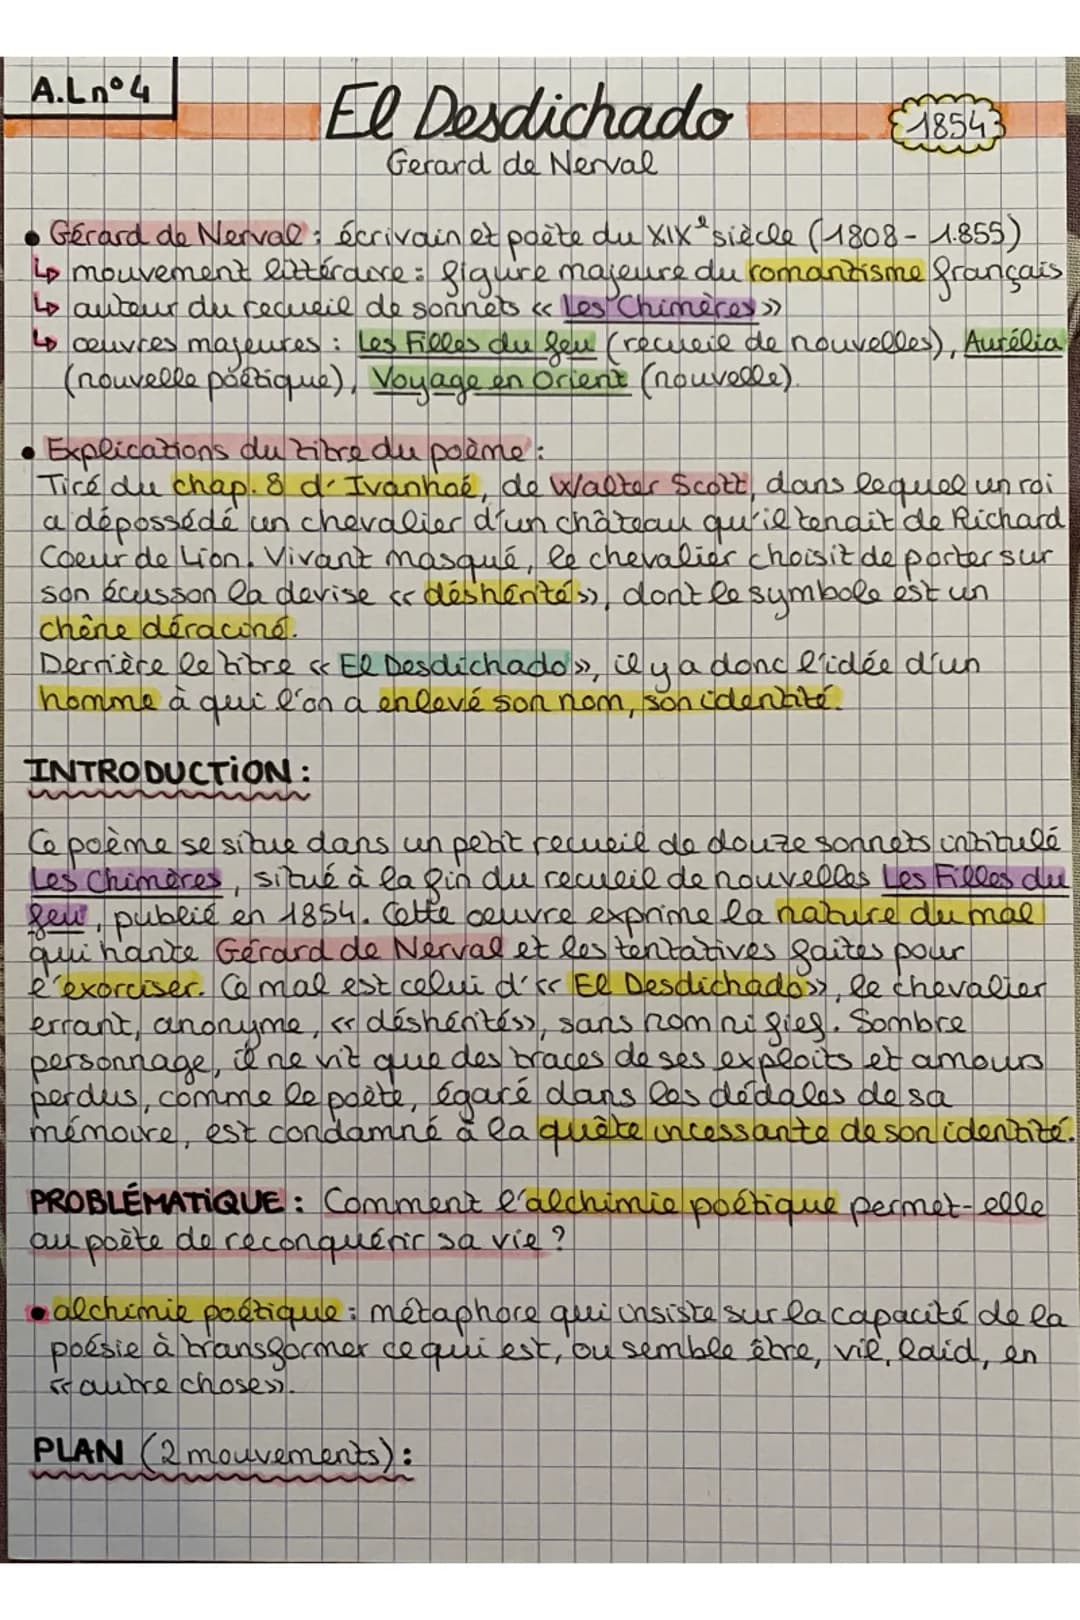 A.L n°4
El Desdichado
1854
Gerard de Nerval
• Gérard de Nerval : écrivain et poète du XIXe siècle (1808 - 1.855)
↳ mouvement littéraire : figure majeure du romantisme français
↳ auteur du recueil de sonnets « Les Chimères »
↳ œuvres majeures : Les Filles du feu (recueil de nouvelles), Aurélia
(nouvelle poétique), Voyage en Orient (nouvelle).
• Explications du titre du poème :
Tiré du chap. 8 d'Ivanhoé, de Walter Scott, dans lequel un roi
a dépossédé un chevalier d'un château qu'il tenait de Richard
Coeur de Lion. Vivant masqué, le chevalier choisit de porter sur
son écusson la devise « déshérité », dont le symbole est un
chêne déraciné.
Derrière le titre « El Desdichado », il y a donc l'idée d'un
homme à qui l'on a enlevé son nom, son identité.
INTRODUCTION :
Ce poème se situe dans un petit recueil de douze sonnets intitulé
Les Chimères, situé à la fin du recueil de nouvelles Les Filles du
feu, publié en 1854. Cette œuvre exprime la nature du mal
qui hante Gérard de Nerval et les tentatives faites pour
l'exorciser. Ce mal est celui d'« El Desdichado », le chevalier
errant, anonyme, « déshérité », sans nom ni fief. Sombre
personnage, il ne vit que des traces de ses exploits et amours
perdus, comme le poète, égaré dans les dédales de sa
mémoire, est condamné à la quête incessante de son identité.
PROBLÉMATIQUE : Comment l'alchimie poétique permet-elle
au poète de reconquérir sa vie ?
• alchimie poétique : métaphore qui insiste sur la capacité de la
poésie à transformer ce qui est, ou semble être, vil, laid, en
« autre chose ».
PLAN (2 mouvements) :